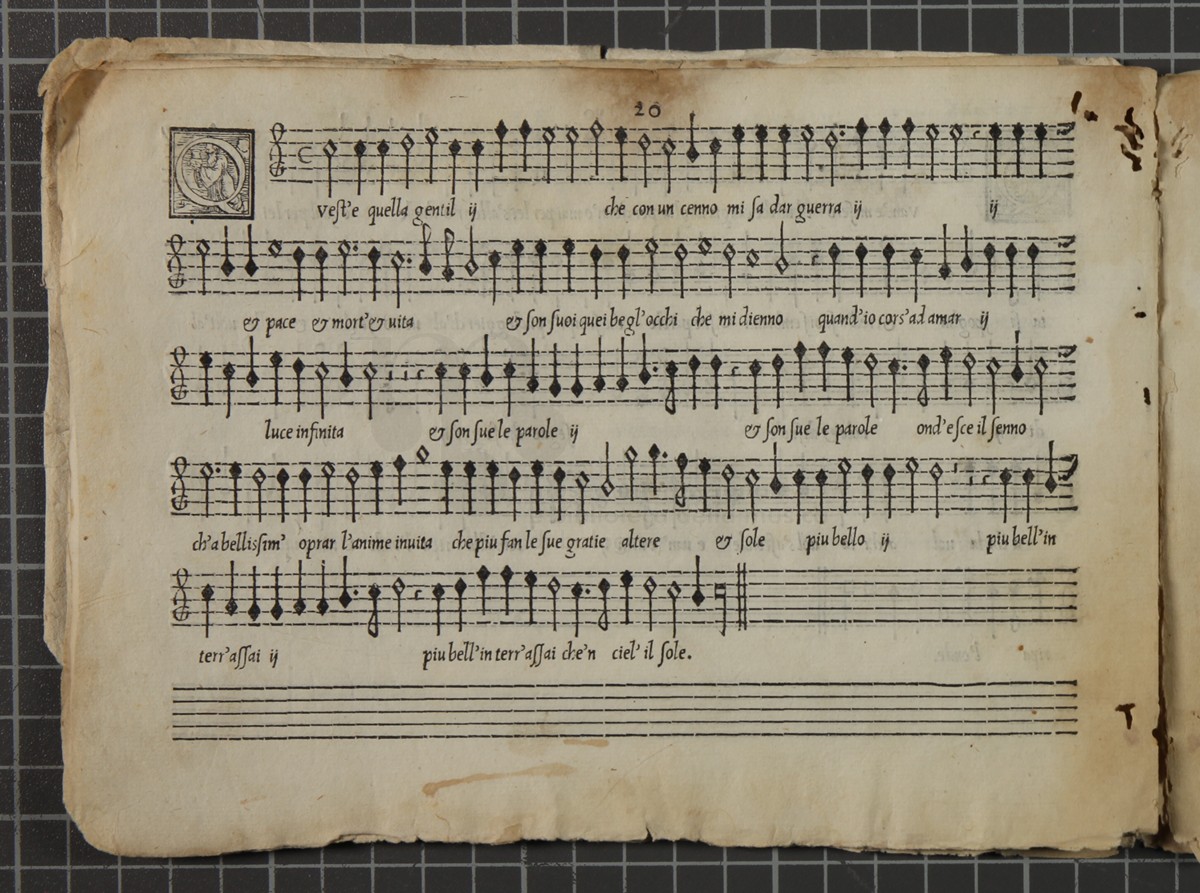 20
Qvest'e quella gentil ij che con un cenno mi fa dar guerra ij ij
& pace & mort'& uita & son suoi quei be gl'occhi che mi dienno quand'io cors'ad amar ij
luce infinita & son sue le parole ij & son sue le parole ond'esce il senno
ch'a bellissim' oprar l'anime inuita che piu fan le sue gratie altere & sole piu bello ij piu bell'in
terr'assai ij piu bell'in terr'assai che'n ciel' il sole.